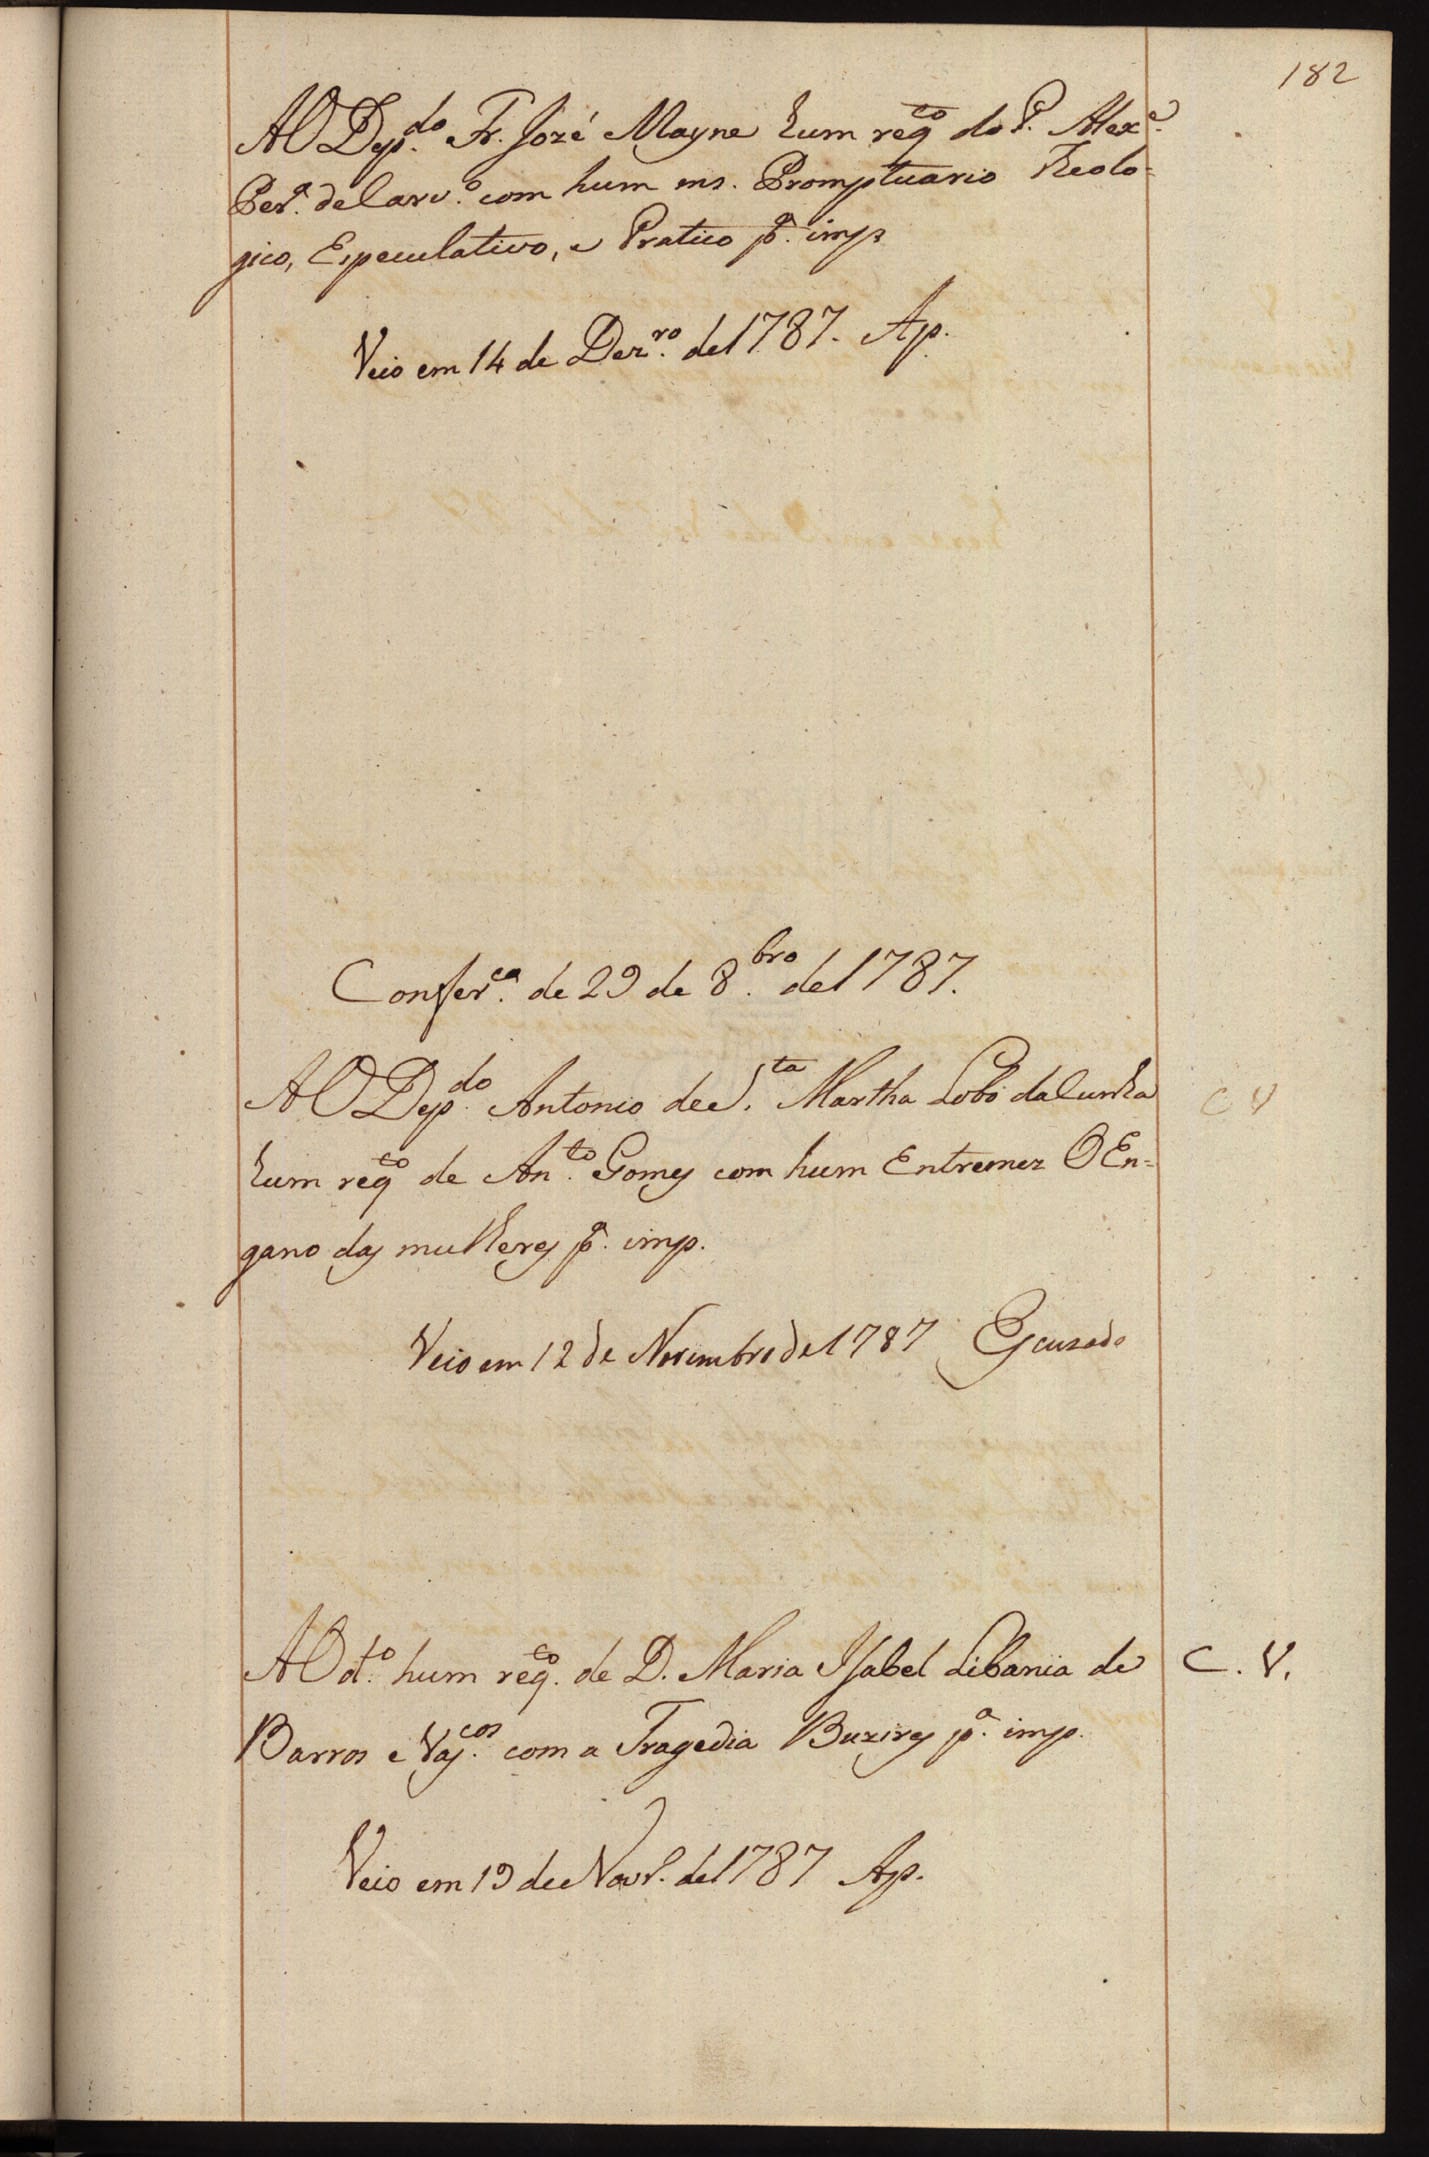 182
AO Dep.do Fr. Jozé Mayne hum reqto do P. Alexe.
Per.a de Carv.o com hum ms. Promptuario Theolo=
gico, Especulativo, e Pratico pa. imp
Veio em 14 de Dez.ro de 1787. Ap.
Confer.ca de 29 de 8.bro de 1787.
AO Dep.do Antonio de S.ta Martha Lobo da Cunha
C V
hum reqto de An.to Gomes com hum Entremez O En=
gano das mulheres pa. imp.
Veio em 12 de Novembro de 1787 Escusado
AO d.o hum reqto. de D. Maria Isabel Libania de
C. V.
Barros e Vas.cos com a Tragedia Buzires pa. imp.
Veio em 19 de Novr. de 1787 Ap.